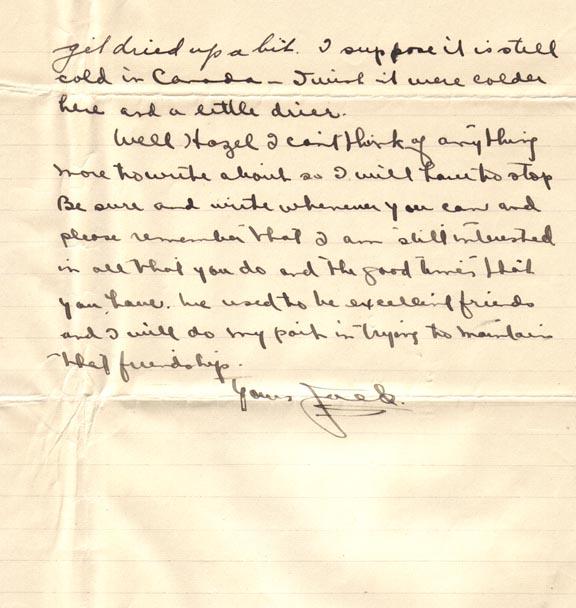 get dried up a bit. I suppose it is still
cold in Canada - I wish it were colder
here and a little drier.
Well Hazel I can't think of anything
more to write about so I will have to stop
Be sure and write whenever you can and
please remember that I am still interested
in all that you do and the good times that
you have. We used to be excellent friends
and I will do my part in trying to maintain
that friendship.
Yours Jack.